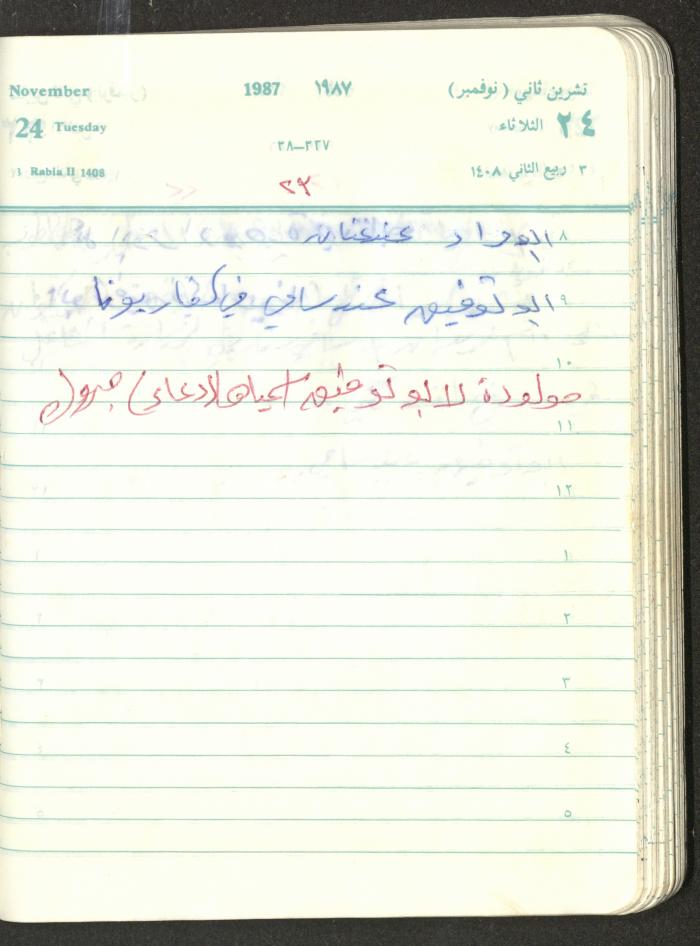 November 1987 ١٩٨٧ تشرين ثاني ( نوفمبر )
24 Tuesday ٢٤ الثلاثاء
٣٨—٣٢٧
3 Rabia II 1408 ٣ ربيع الثاني ١٤٠٨
٢٩
٨ ابو مراد عند عنان
٩ ابو توفيق عند سامي في
١٠
مولودة لا ابو توفيق
١١
١٢
١
٢
٣
٤
٥